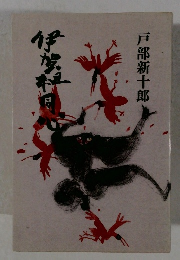 戸部新十郎
伊賀組同心